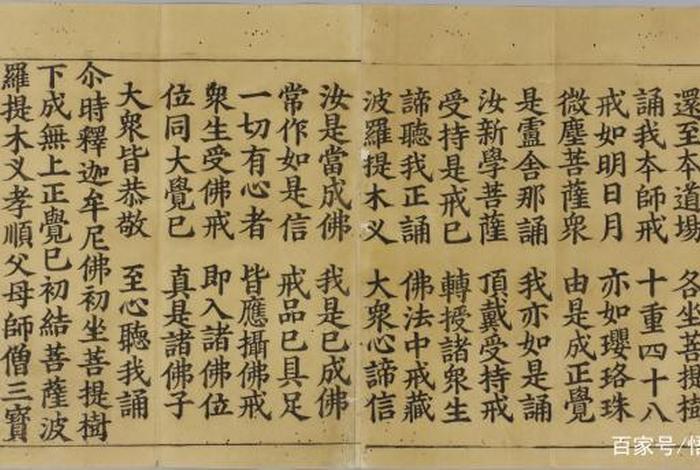 還至本道場 各坐菩提樹
誦我本師戒 十重四十八
戒如明日月 亦如瓔珞珠
微塵菩薩衆 由是成正覺
是盧舍那誦 我亦如是誦
汝新學菩薩 頂戴受持戒
受持是戒已 轉授諸衆生
諦聽我正誦 佛法中戒藏
波羅提木叉 大衆心諦信
汝是當成佛 我是已成佛
常作如是信 戒品已具足
一切有心者 皆應攝佛戒
衆生受佛戒 即入諸佛位
位同大覺已 真是諸佛子
大衆皆恭敬 至心聽我誦
尒時釋迦牟尼佛初坐菩提樹
下成無上正覺已初結菩薩波
羅提木叉孝順父母師僧三寳
百家号/